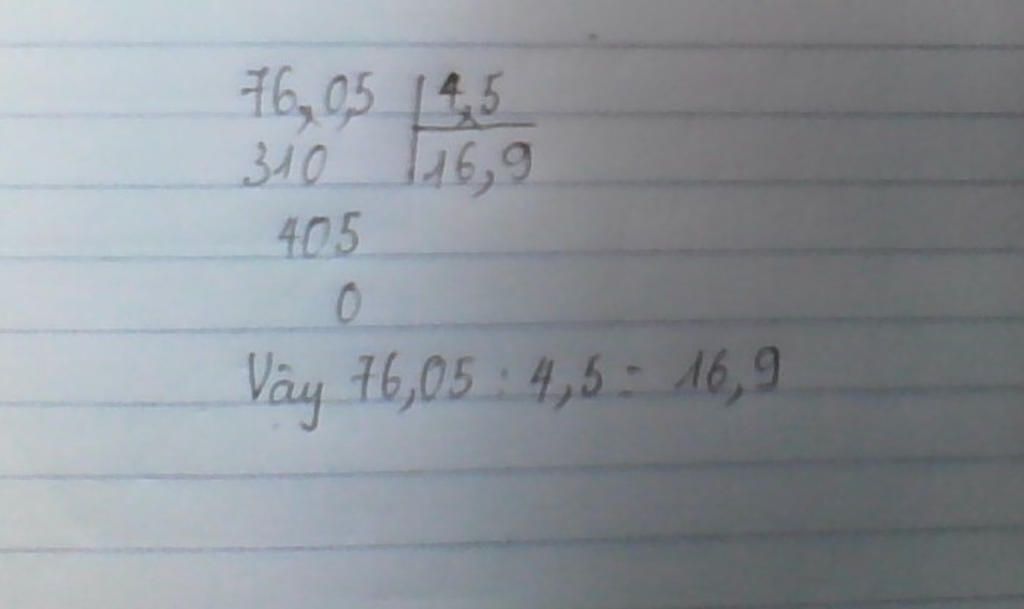 76,0,5 4,5
310 16,9
405
0
Vây 76,05 : 4,5 = 16,9